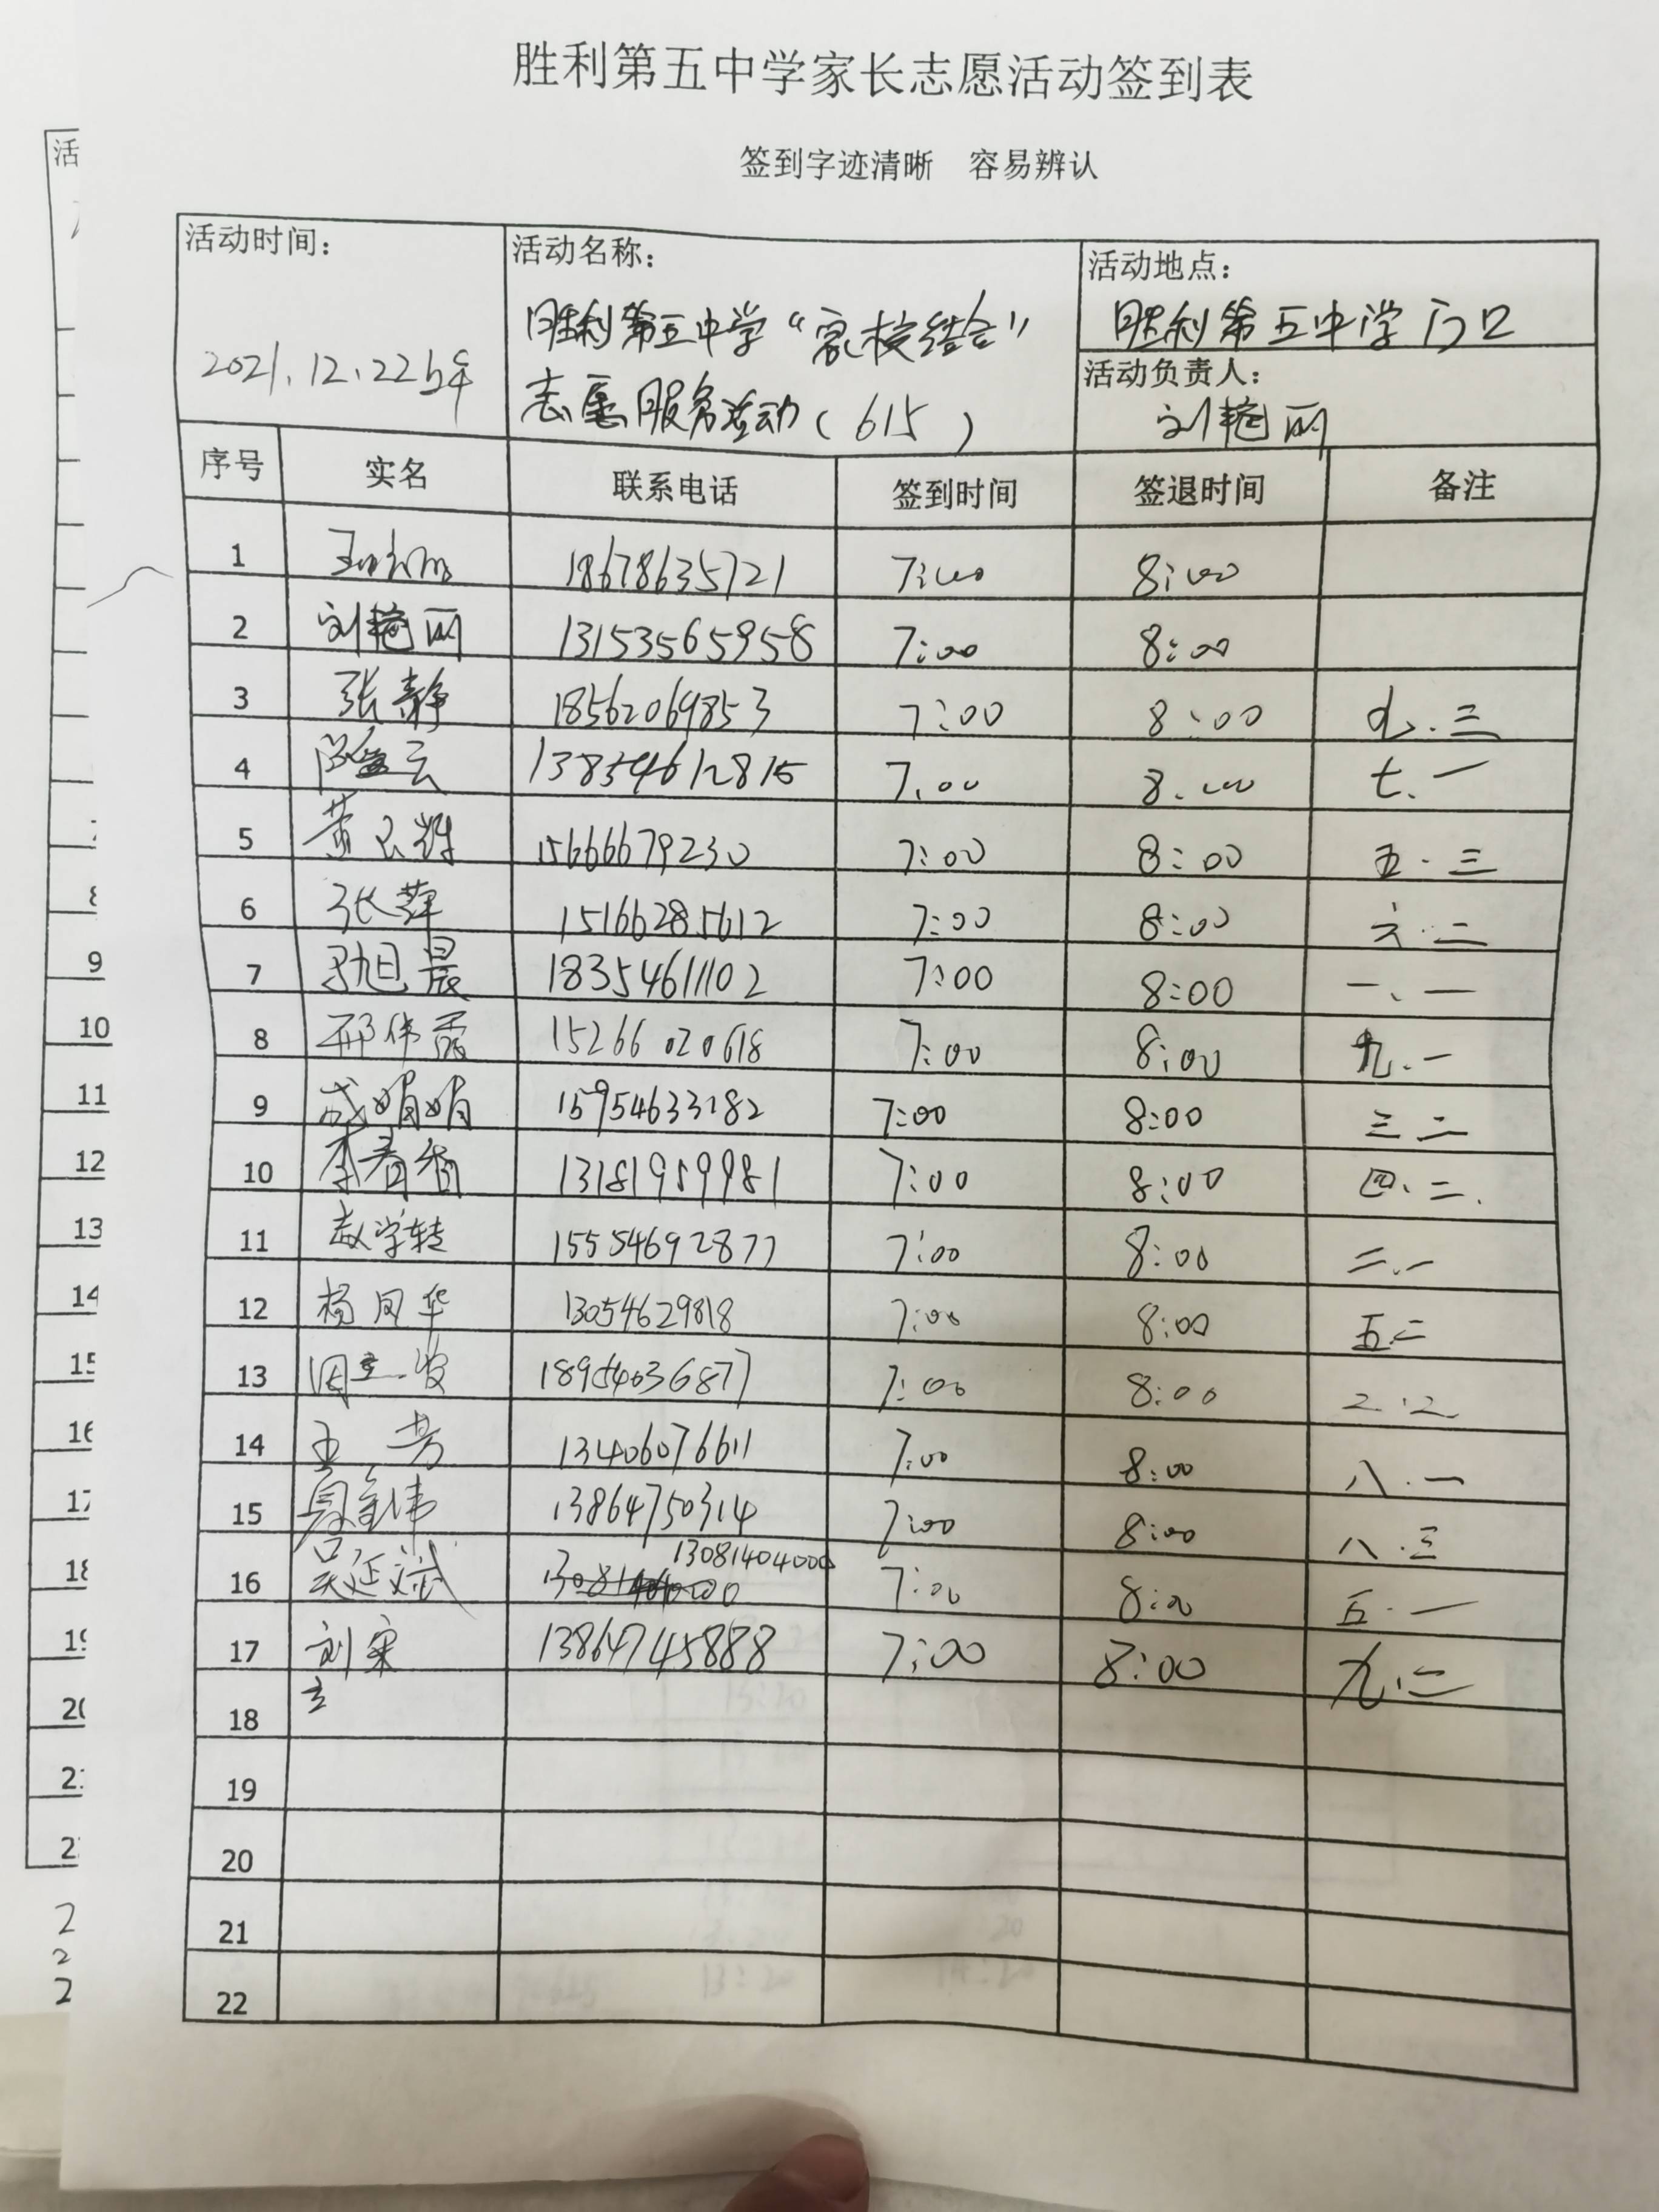 胜利第五中学家长志愿活动签到表
签到字迹清晰 容易辨认
活动时间： 活动名称： 活动地点：
胜利第五中学“家校结合” 胜利第五中学门口
2021.12.22上午 志愿服务活动（615） 活动负责人：
刘艳丽
序号 实名 联系电话 签到时间 签退时间 备注
1 18678635721 7:00 8:00
2 刘艳丽 13153565958 7:00 8:00
3 张静 18562069853 7:00 8:00 七.三
4 云 13854612815 7.00 8.00 七.一
5 黄 15666679230 7:00 8:00 五.三
6 张萍 15166285612 7:00 8:00 六.二
7 旭晨 18354611102 7:00 8:00 一、一
8 邢伟霞 15266020618 7:00 8:00 九.一
9 成娟娟 15954633282 7:00 8:00 三二
10 李春香 13181959981 7:00 8:00 四、二.
11 赵学转 15554692877 7:00 8:00 二.一
12 杨风华 13054629818 7:00 8:00 五二
13 周 18954036877 7:00 8:00 2.2
14 王芳 13406076611 7:00 8:00 八.一
15 伟 13864750314 7:00 8:00 八.三
16 吴延斌 13081404000 7:00 8:00 五.一
17 刘宋 13864745888 7:00 8:00 九.二
18
19
20
21
22
活
9
10
11
12
13
14
15
2
2
2